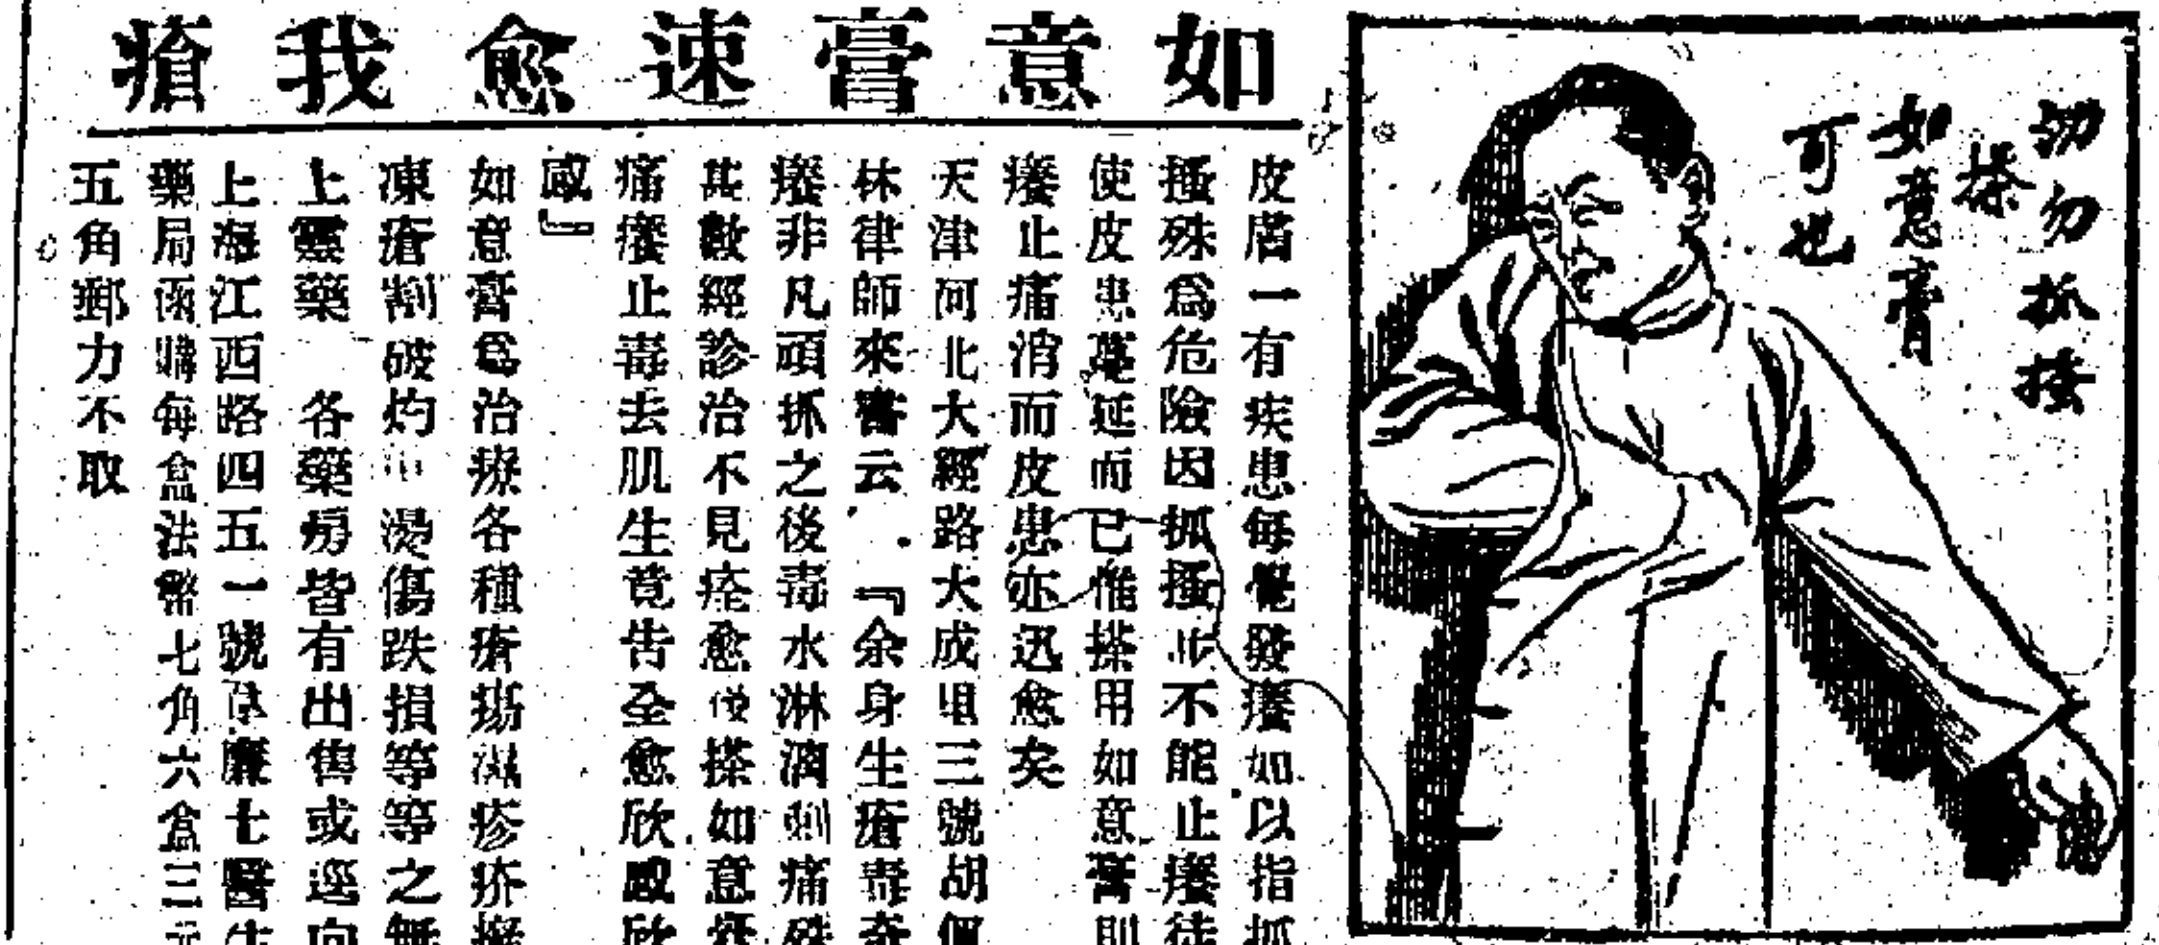 如意膏速愈我瘡
皮膚一有疾患每覺發癢如以指抓
搔殊為危險因抓搔非不能止癢徒
使皮患蔓延而已惟搽用如意膏則
癢止痛消而皮患亦迅愈矣
天津河北大經路大成里三號胡佩
林律師來書云．『余身生瘡毒奇
癢非凡頑抓之後毒水淋漓刺痛殊
甚數經診治不見痊愈後搽如意膏
痛癢止毒去肌生竟告全愈欣感欣
感』
如意膏為治療各種瘡瘍濕疹疥癬
凍瘡割破灼 燙傷跌損等等之無
上靈藥 各藥房皆有出售或逕向
上海江西路四五一號韋廉士醫生
藥局函購每盒法幣七角六盒三元
五角郵力不取
勿抓搔
搽
如意膏
可也